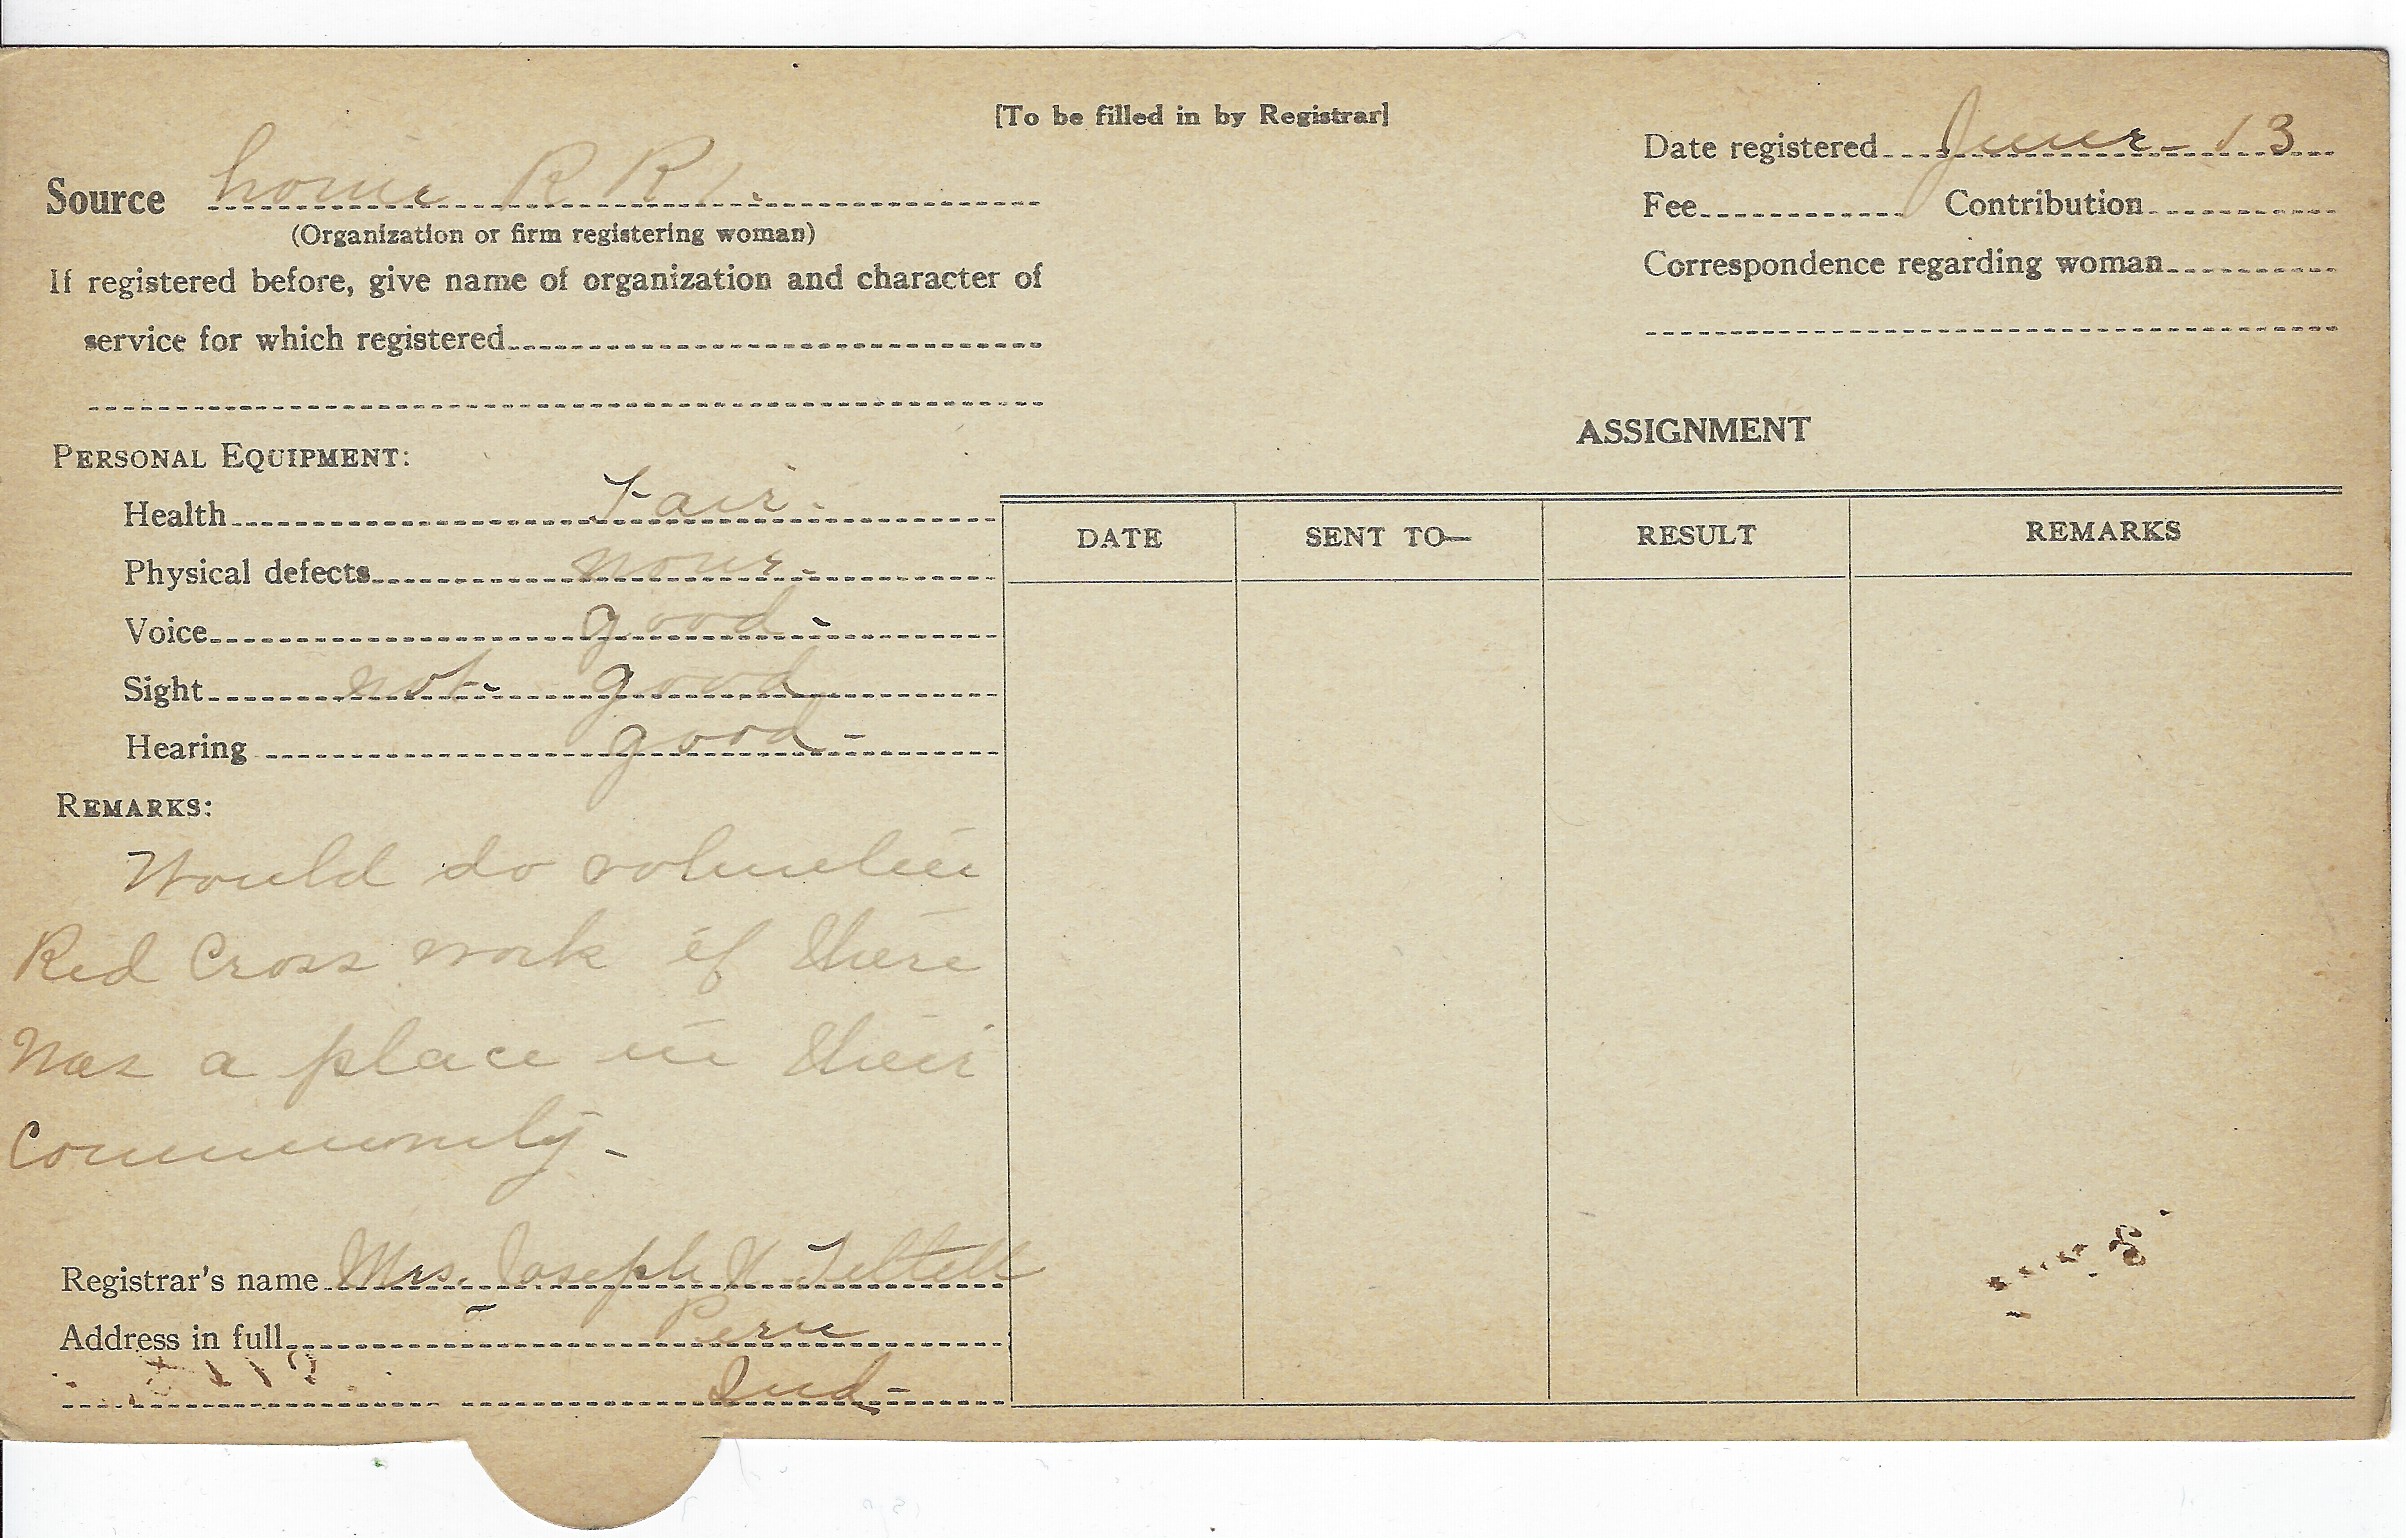 [To be filled in by Registrar]
Source home R R 1.
(Organization or firm registering woman)
If registered before, give name of organization and character of
service for which registered
Date registered June 13
Fee Contribution
Correspondence regarding woman
PERSONAL EQUIPMENT:
Health Fair.
Physical defects none.
Voice good.
Sight not good
Hearing good
REMARKS:
Would do volunteer
Red Cross work if there
was a place in their
community.
Registrar's name Mrs. Joseph
Address in full Peru
Ind
ASSIGNMENT
DATE SENT TO— RESULT REMARKS